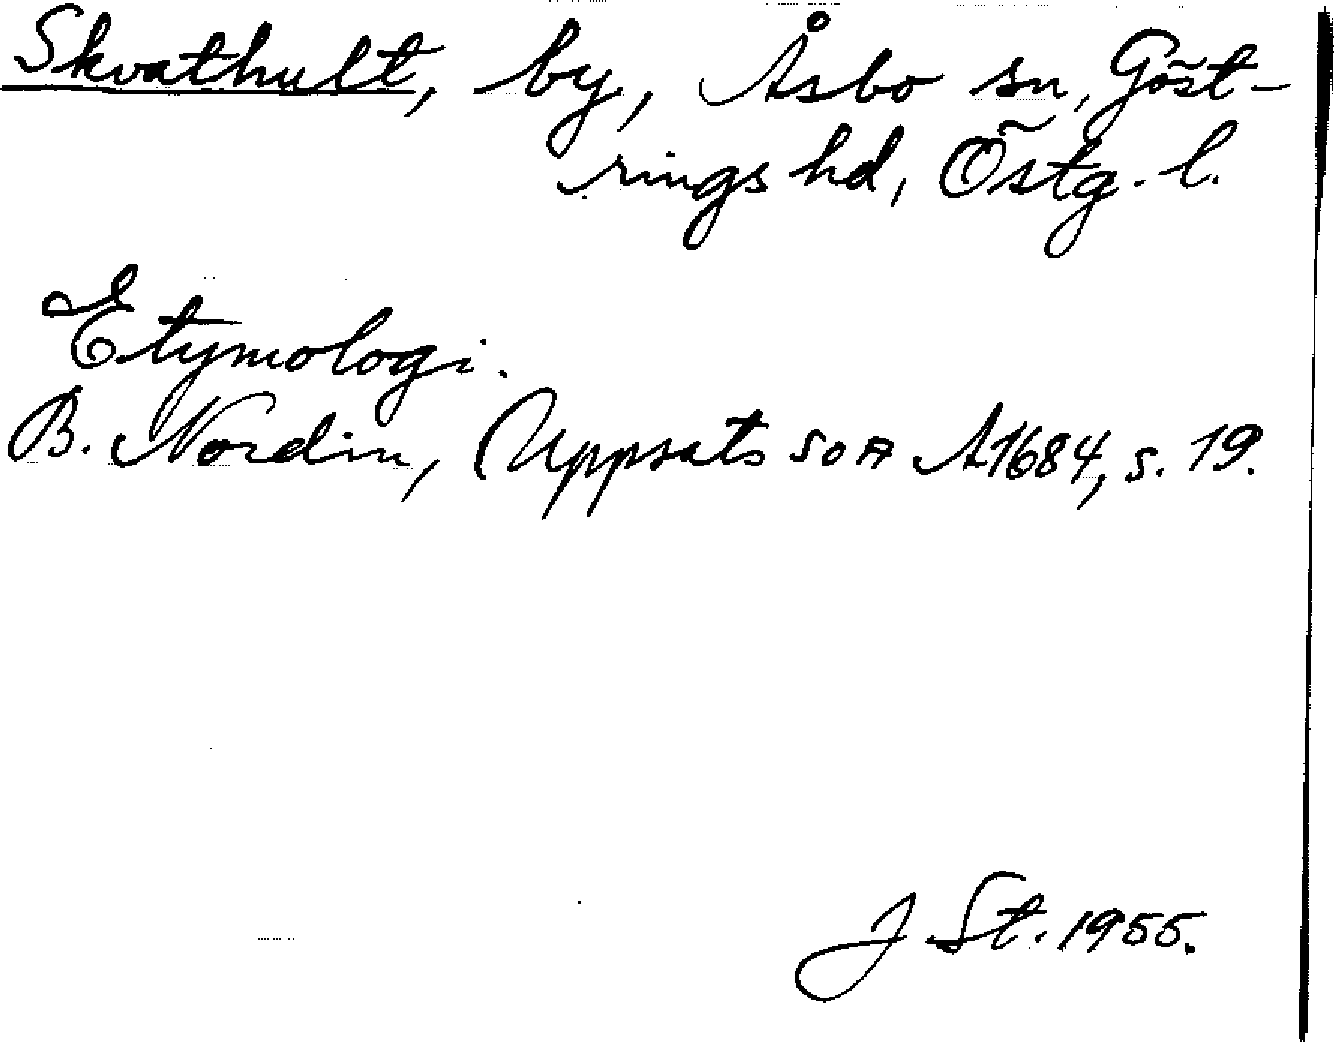 Skvathult, by, Åsbo sn, Göst-
rings hd, Östg. l.
Etymologi.
B. Nordin, Uppsats SOA A1684, s. 19.
J St. 1955.